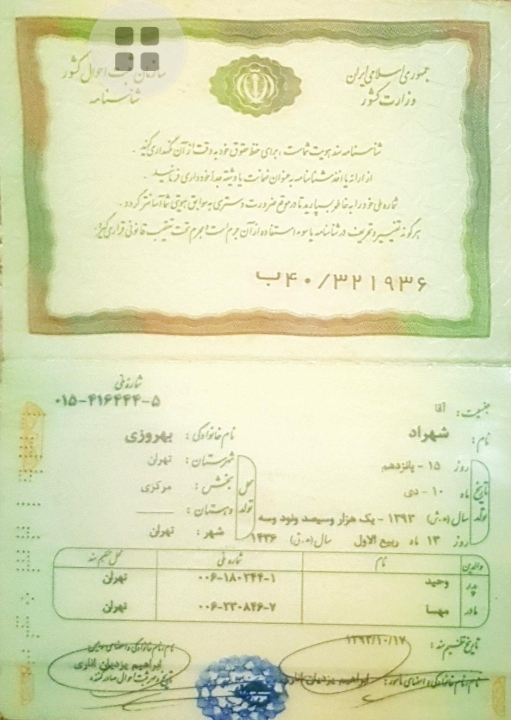 جمهوری اسلامی ایران
وزارت کشور
سازمان ثبت احوال کشور
شناسنامه
شناسنامه سند هویت شماست ، برای حفظ حقوق خود به دقت از آن نگهداری کنید .
از ارائه یا اخذ شناسنامه به عنوان ضمانت یا وثیقه جدا خودداری فرمائید .
شماره ملی خود را به خاطر بسپارید تا در موقع ضرورت دسترسی به سوابق هویتی شما آسانتر گردد .
هر گونه تغییر و تحریف در شناسنامه یا سوء استفاده از آن جرم است و مجرم تحت تعقیب قانونی قرار می گیرد .
ب۴۰/۳۲۱۹۳۶
شماره ملی
۰۱۵-۴۱۶۴۴۴-۵
جنسیت : آقا
نام : شهراد
نام خانوادگی : بهروزی
تاریخ تولد
روز ۱۵ - پانزدهم
ماه ۱۰ - دی
سال (ه.ش) ۱۳۹۳ - یک هزار وسیصد ونود وسه
روز ۱۳ ماه ربیع الاول سال (ه.ق) ۱۴۳۶
محل تولد
شهرستان : تهران
بخش : مرکزی
دهستان :
شهر : تهران
والدین نام شماره ملی محل تنظیم سند
پدر وحید ۰۰۶-۱۸۰۲۴۴-۱ تهران
مادر مهسا ۰۰۶-۲۳۰۸۴۶-۷ تهران
تاریخ تنظیم سند : ۱۳۹۳/۱۰/۱۷
نام و نام خانوادگی و امضای مامور : ابراهیم یزدیان اناری
ابراهیم یزدیان اناری